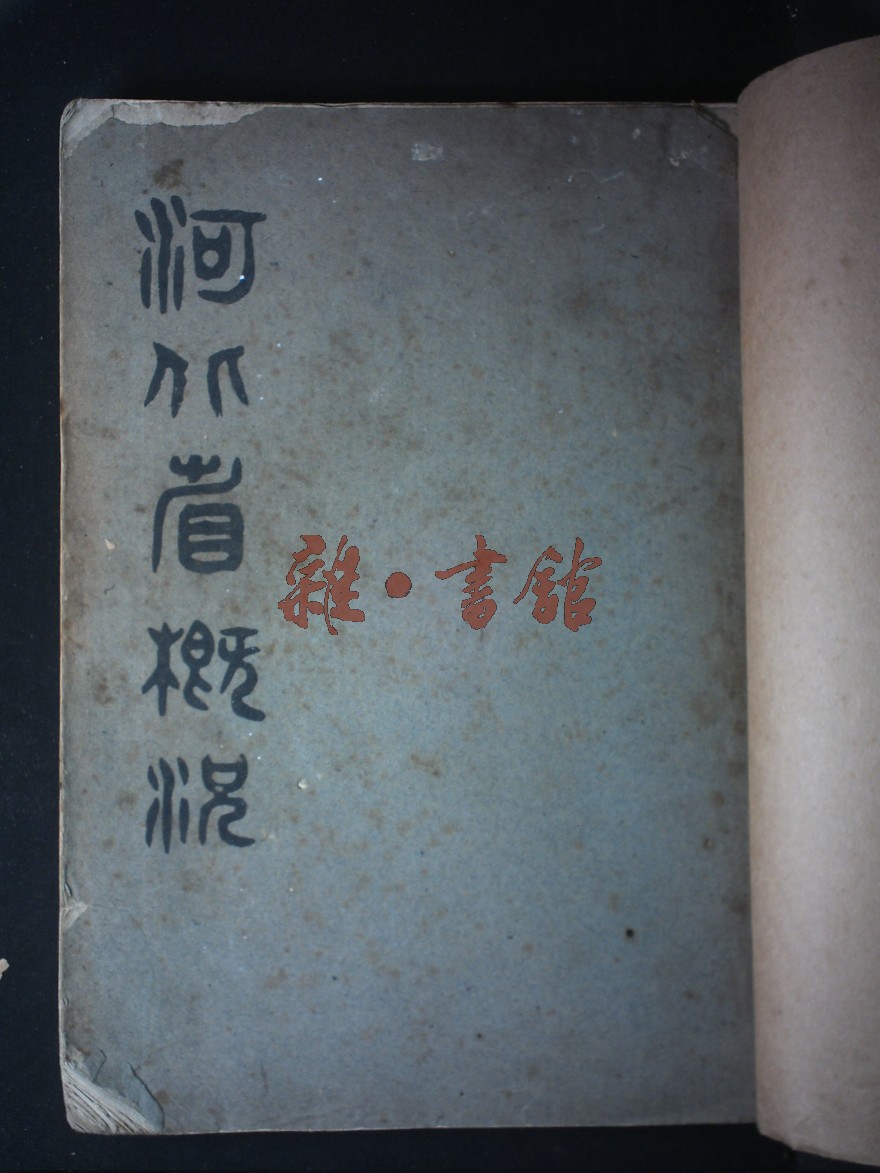 河北省概況
雜·書館